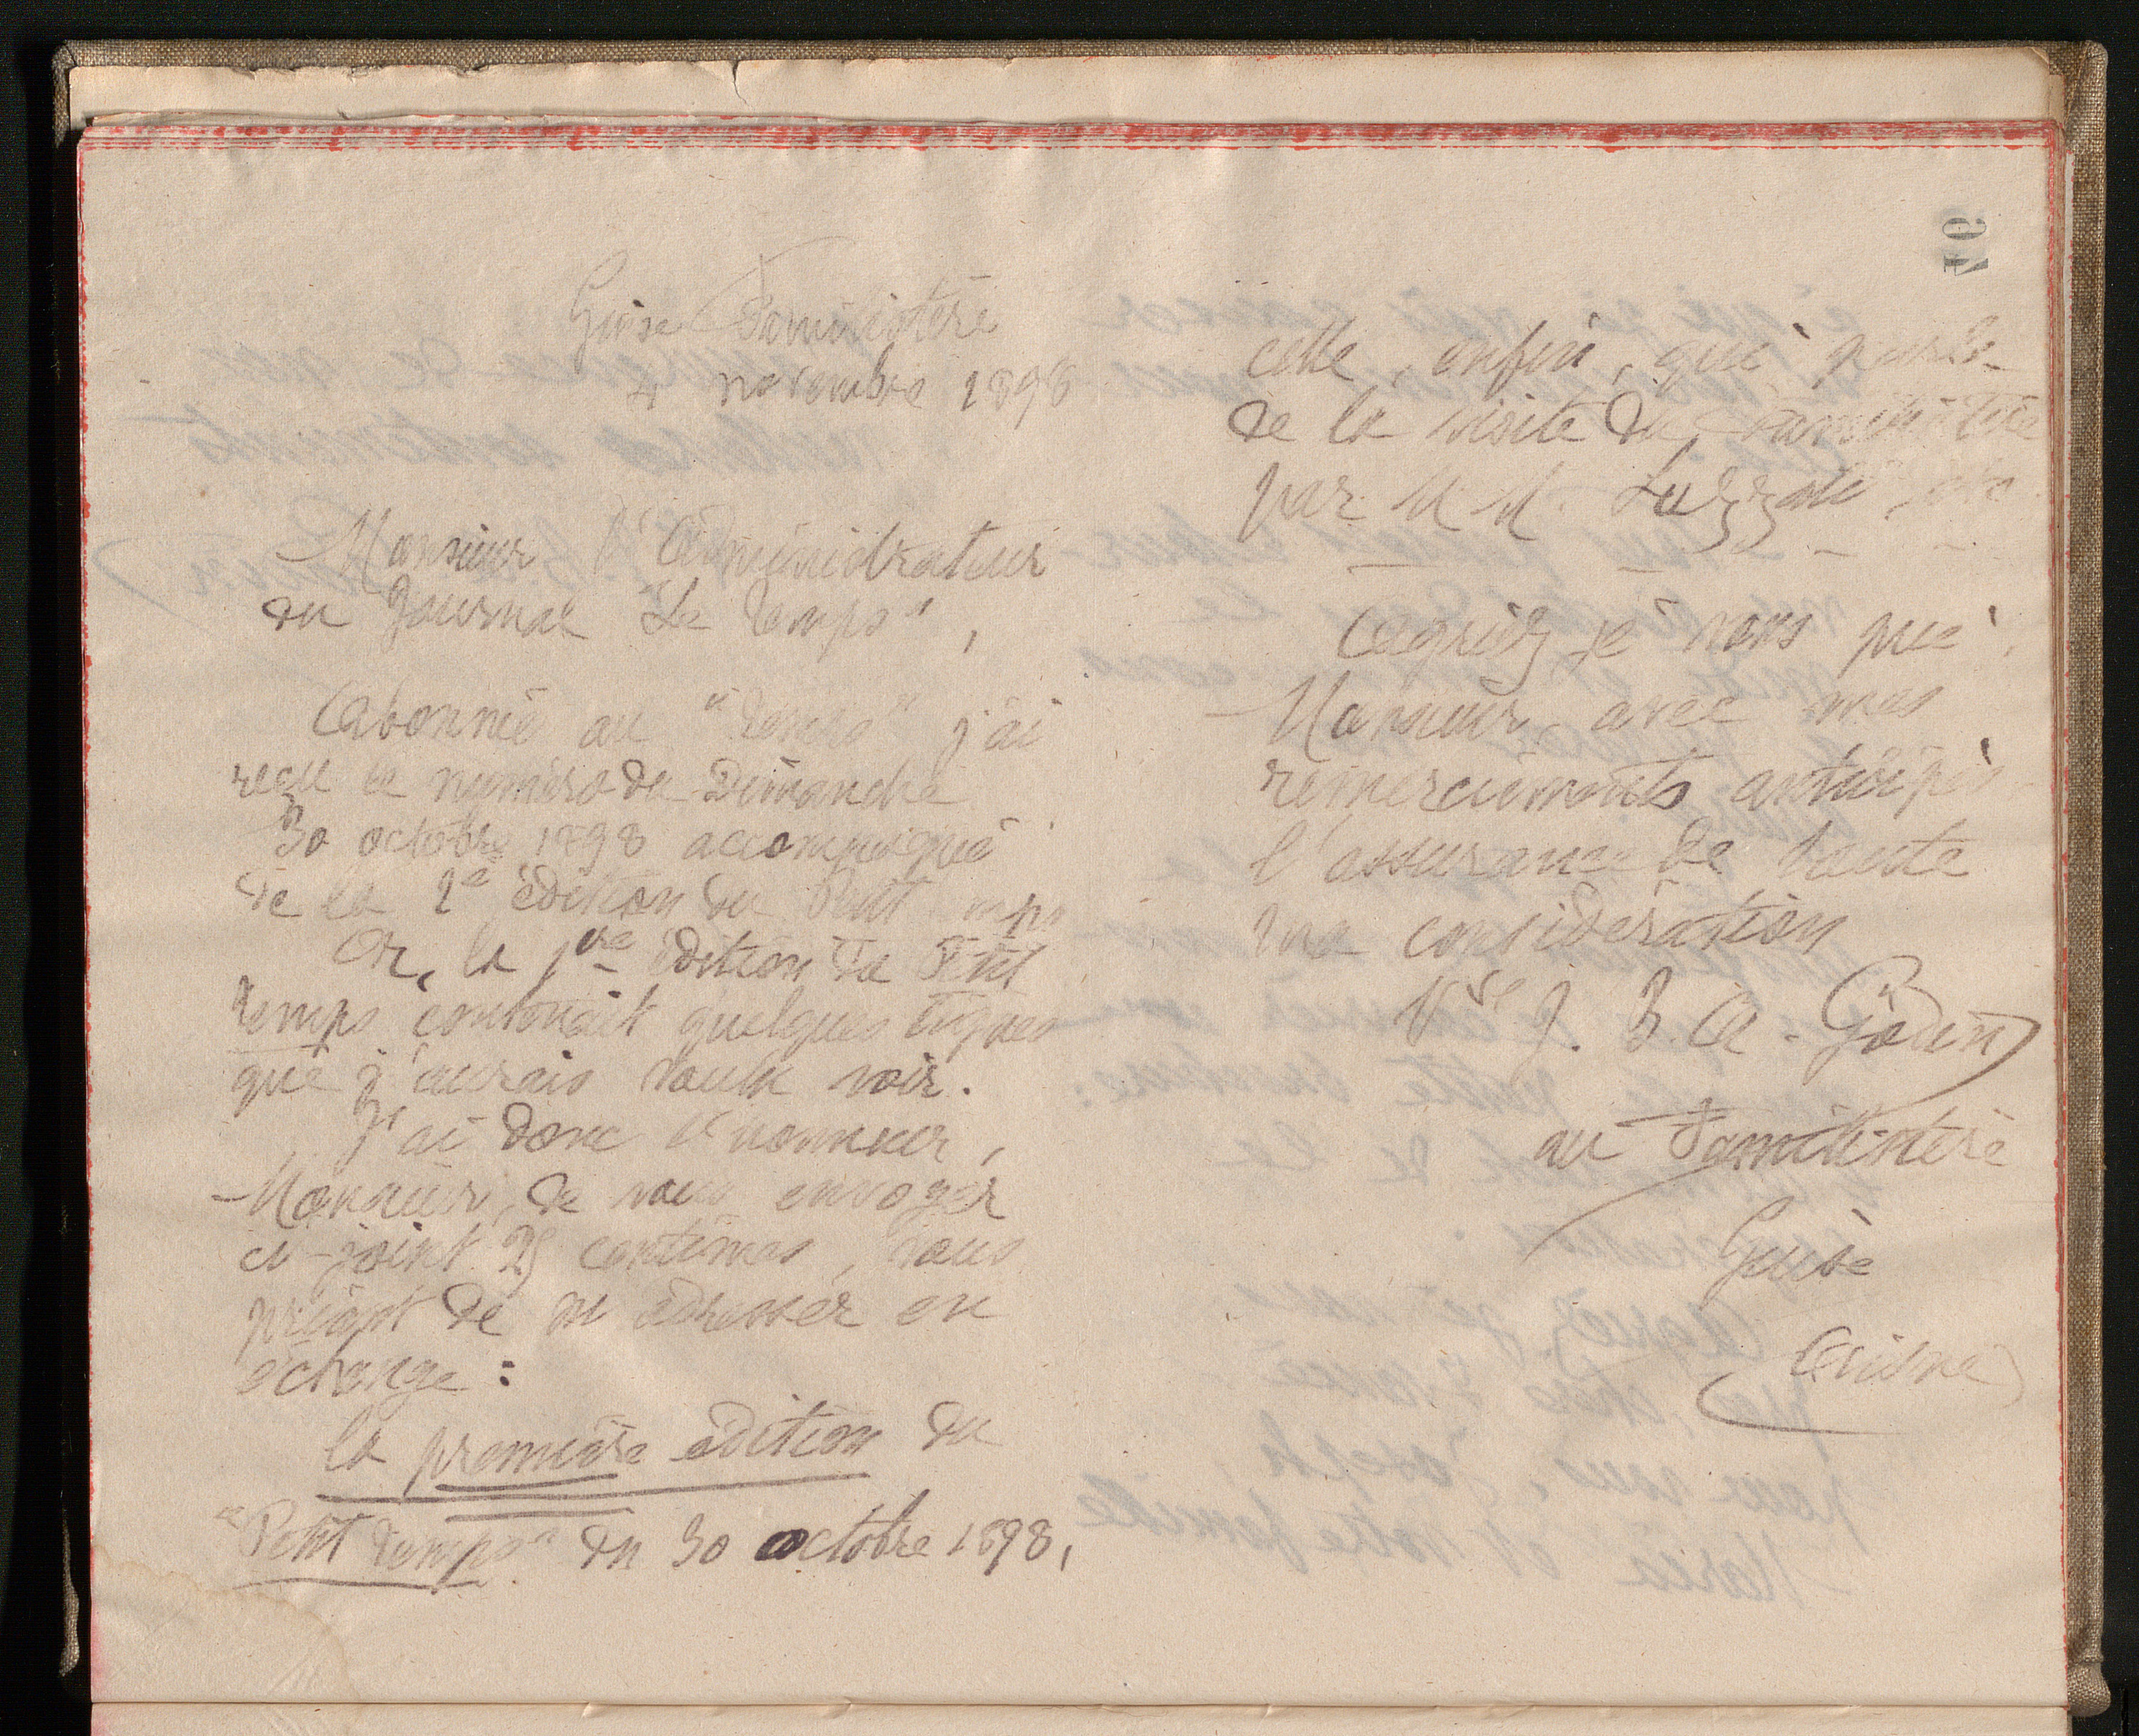 Guise Familistère
4 novembre 1898
Monsieur l'Administrateur
du journal "Le Temps",
Abonnée au "Temps" j'ai
reçu le numéro du Dimanche
30 octobre 1898 accompagné
de la 2e édition du Petit Temps
Or, la 1ère édition du Petit
Temps contenait quelques lignes
que j'aurais voulu voir.
J'ai donc l'honneur,
Monsieur, de vous envoyer
ci-joint 25 centimes, vous
priant de m'adresser en
échange :
la première édition du
"Petit Temps" du 30 octobre 1898,
celle, enfin, qui parle
de la visite du Familistère
par M M. Luzzati, etc
Agréez je vous prie,
Monsieur, avec mes
remerciements anticipés
l'assurance de toute
ma considération
Vve J. B. A. Godin
au Familistère
Guise
Aisne
97